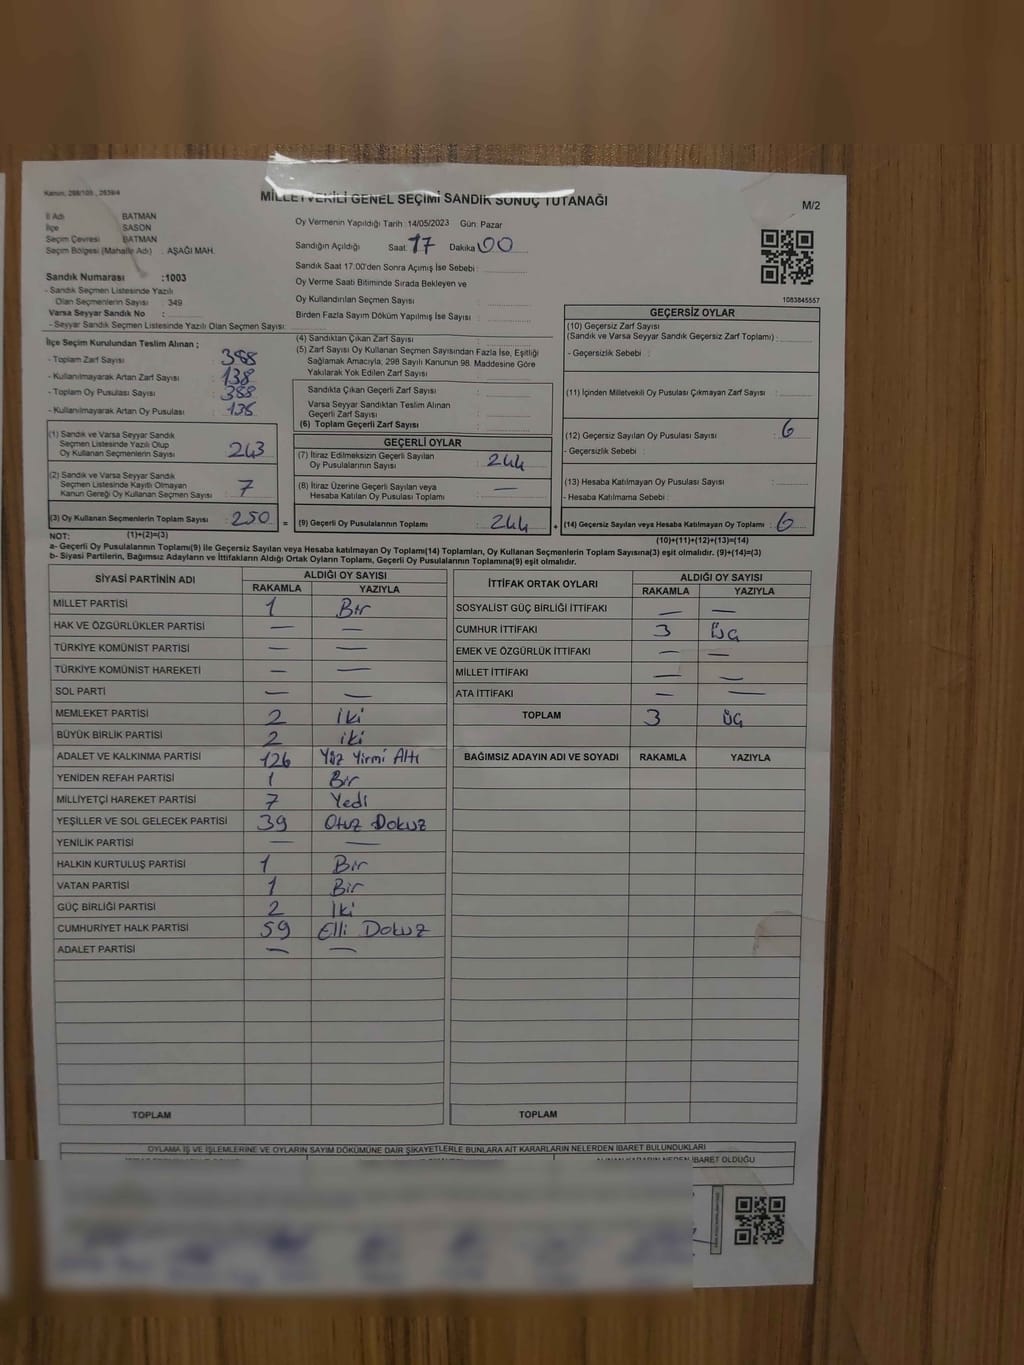 Kanun, 298/105 , 2839/4
MİLLETVEKİLİ GENEL SEÇİMİ SANDIK SONUÇ TUTANAĞI
M/2
İl Adı BATMAN
İlçe SASON
Seçim Çevresi BATMAN
Seçim Bölgesi (Mahalle Adı) : AŞAĞI MAH.
Sandık Numarası :1003
- Sandık Seçmen Listesinde Yazılı
Olan Seçmenlerin Sayısı : 349
Varsa Seyyar Sandık No :
- Seyyar Sandık Seçmen Listesinde Yazılı Olan Seçmen Sayısı:
Oy Vermenin Yapıldığı Tarih : 14/05/2023 Gün: Pazar
Sandığın Açıldığı Saat: 17 Dakika: 00
Sandık Saat 17:00'den Sonra Açımış İse Sebebi :
Oy Verme Saati Bitiminde Sırada Bekleyen ve
Oy Kullandırılan Seçmen Sayısı :
Birden Fazla Sayım Döküm Yapılmış İse Sayısı :
1083845557
İlçe Seçim Kurulundan Teslim Alınan ;
- Toplam Zarf Sayısı : 388
- Kullanılmayarak Artan Zarf Sayısı : 138
- Toplam Oy Pusulası Sayısı : 388
- Kullanılmayarak Artan Oy Pusulası :
(1) Sandık ve Varsa Seyyar Sandık
Seçmen Listesinde Yazılı Olup
Oy Kullanan Seçmenlerin Sayısı : 243
(2) Sandık ve Varsa Seyyar Sandık
Seçmen Listesinde Kayıtlı Olmayan
Kanun Gereği Oy Kullanan Seçmen Sayısı : 7
(3) Oy Kullanan Seçmenlerin Toplam Sayısı : 250 =
(4) Sandıktan Çıkan Zarf Sayısı :
(5) Zarf Sayısı Oy Kullanan Seçmen Sayısından Fazla İse, Eşitliği
Sağlamak Amacıyla, 298 Sayılı Kanunun 98. Maddesine Göre
Yakılarak Yok Edilen Zarf Sayısı :
Sandıkta Çıkan Geçerli Zarf Sayısı :
Varsa Seyyar Sandıktan Teslim Alınan
Geçerli Zarf Sayısı :
(6) Toplam Geçerli Zarf Sayısı :
GEÇERLİ OYLAR
(7) İtiraz Edilmeksizin Geçerli Sayılan
Oy Pusulalarının Sayısı : 244
(8) İtiraz Üzerine Geçerli Sayılan veya
Hesaba Katılan Oy Pusulası Toplamı : —
(9) Geçerli Oy Pusulalarının Toplamı : 244 +
GEÇERSİZ OYLAR
(10) Geçersiz Zarf Sayısı
(Sandık ve Varsa Seyyar Sandık Geçersiz Zarf Toplamı) :
- Geçersizlik Sebebi :
(11) İçinden Milletvekili Oy Pusulası Çıkmayan Zarf Sayısı :
(12) Geçersiz Sayılan Oy Pusulası Sayısı : 6
- Geçersizlik Sebebi :
(13) Hesaba Katılmayan Oy Pusulası Sayısı :
- Hesaba Katılmama Sebebi :
(14) Geçersiz Sayılan veya Hesaba Katılmayan Oy Toplamı : 6
NOT: (1)+(2)=(3)
(10)+(11)+(12)+(13)=(14)
a- Geçerli Oy Pusulalarının Toplamı(9) ile Geçersiz Sayılan veya Hesaba katılmayan Oy Toplamı(14) Toplamları, Oy Kullanan Seçmenlerin Toplam Sayısına(3) eşit olmalıdır. (9)+(14)=(3)
b- Siyasi Partilerin, Bağımsız Adayların ve İttifakların Aldığı Ortak Oyların Toplamı, Geçerli Oy Pusulalarının Toplamına(9) eşit olmalıdır.
SİYASİ PARTİNİN ADI ALDIĞI OY SAYISI
RAKAMLA YAZIYLA
MİLLET PARTİSİ 1 Bir
HAK VE ÖZGÜRLÜKLER PARTİSİ — —
TÜRKİYE KOMÜNİST PARTİSİ — —
TÜRKİYE KOMÜNİST HAREKETİ — —
SOL PARTİ — —
MEMLEKET PARTİSİ 2 İki
BÜYÜK BİRLİK PARTİSİ 2 iki
ADALET VE KALKINMA PARTİSİ 126 Yüz Yirmi Altı
YENİDEN REFAH PARTİSİ 1 Bir
MİLLİYETÇİ HAREKET PARTİSİ 7 Yedi
YEŞİLLER VE SOL GELECEK PARTİSİ 39 Otuz Dokuz
YENİLİK PARTİSİ — —
HALKIN KURTULUŞ PARTİSİ 1 Bir
VATAN PARTİSİ 1 Bir
GÜÇ BİRLİĞİ PARTİSİ 2 İki
CUMHURİYET HALK PARTİSİ 59 Elli Dokuz
ADALET PARTİSİ — —
TOPLAM
İTTİFAK ORTAK OYLARI ALDIĞI OY SAYISI
RAKAMLA YAZIYLA
SOSYALİST GÜÇ BİRLİĞİ İTTİFAKI — —
CUMHUR İTTİFAKI 3 Üç
EMEK VE ÖZGÜRLÜK İTTİFAKI — —
MİLLET İTTİFAKI — —
ATA İTTİFAKI — —
TOPLAM 3 üç
BAĞIMSIZ ADAYIN ADI VE SOYADI RAKAMLA YAZIYLA
TOPLAM
OYLAMA İŞ VE İŞLEMLERİNE VE OYLARIN SAYIM DÖKÜMÜNE DAİR ŞİKAYETLERLE BUNLARA AİT KARARLARIN NELERDEN İBARET BULUNDUKLARI
ALINAN KARARIN NEDEN İBARET OLDUĞU